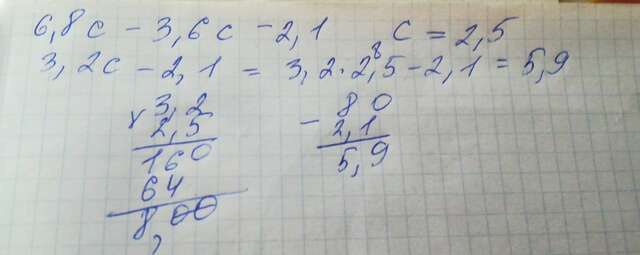 6,8c - 3,6c - 2,1 c = 2,5
3,2c - 2,1 = 3,2 · 2,5 - 2,1 = 5,9
8
× 3,2
2,5
160
64
8,00
- 80
2,1
5,9